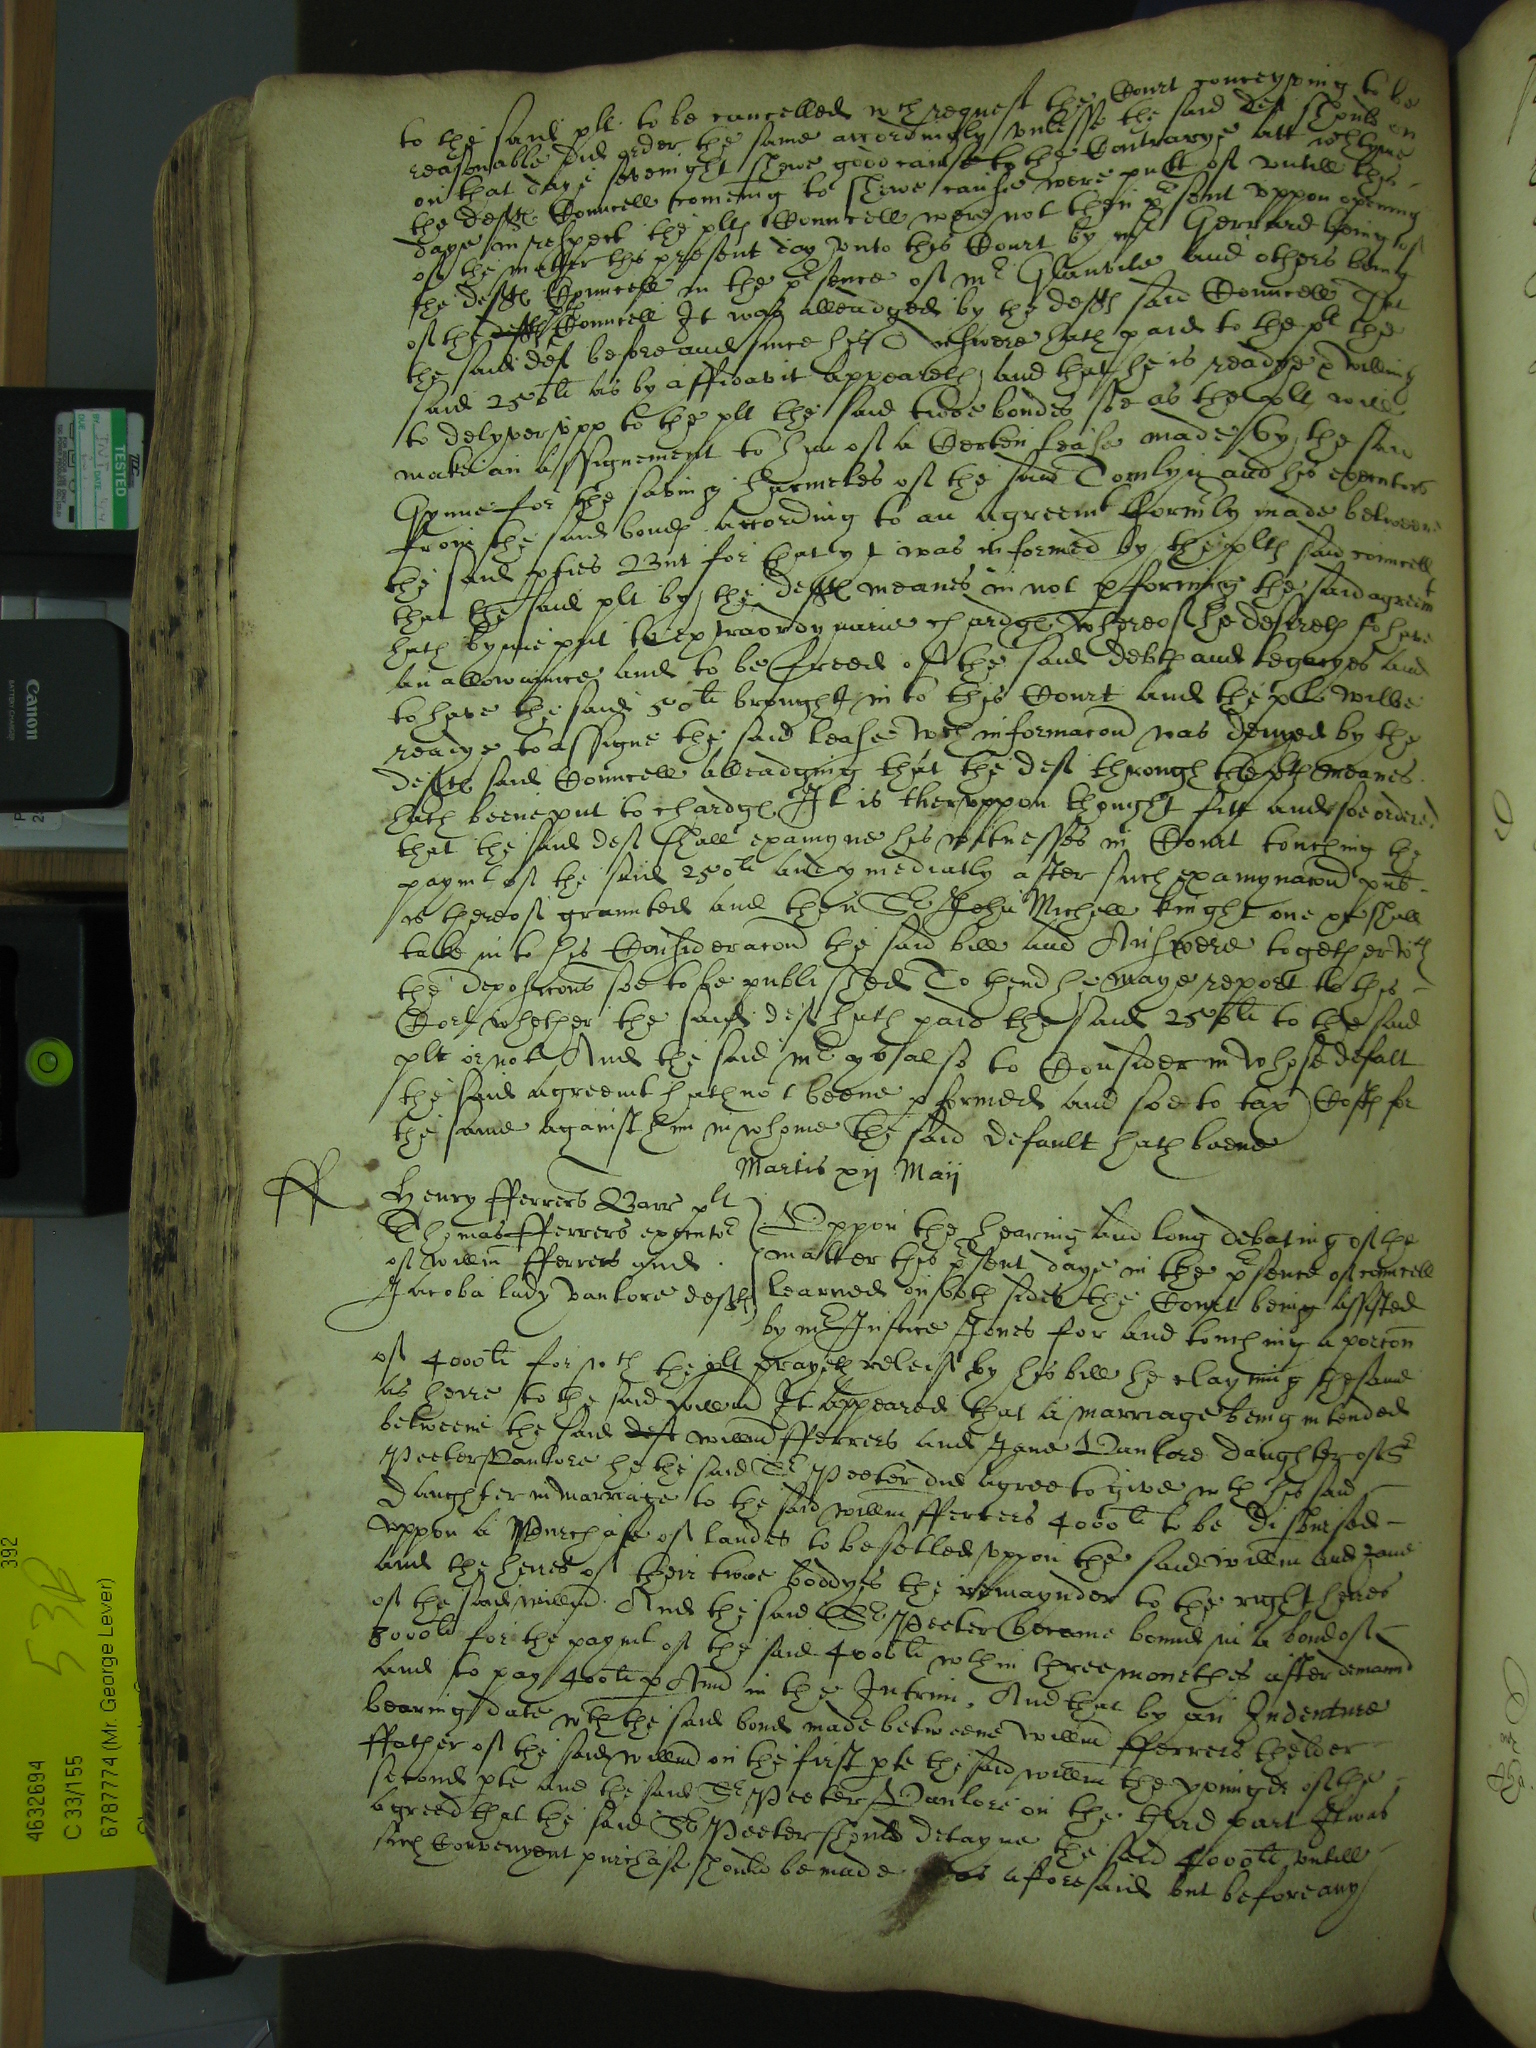 to the said plt to be cancelled wch request the Court conceyving to be
reasonable did order the same accordingly unlesse the said deft should on
on that daye sevenight shewe good cause to the Contrarye att wch tyme
the defts Councell comeing to shewe cause were putt of untill this
daye in respect the plts Councell were not then psent uppon opening
of the matter this present day unto this Court by mr Gerrard being of
the defts Councell in the psence of mr Glanvile and others being
of the plts Councell It was alleadged by the defts said Councell That
the said deft before and since his Answere hath paid to the plt the
said 250li as by affidavit appeareth and that he is readye & willing
to delyver upp to the plt the said twoe bondes soe as the plt will
make an assignement to him of a Certen lease made by the said
Gynne for the saving harmeles of the said Tomlyn and his executors
from the said bonds according to an agreemt formrly made betweene
the said pties But for that yt was informed by the plts said councell
that the said plt by the defts meanes in not pforming the said agreemt
hath bynne put to extraordynarie chardgs whereof he desireth to have
an allowance and to be freed of the said debts and legacyes and
to have the said 50li brought in to this Court and the plt wilbe
readye to assigne the said lease wch informacon was denyed by the
defts said Councell alleadging that the deft through the plts meanes
hath beene put to chardgs It is theruppon thought fitt and soe ordered
that the said deft shall examyne his witnesses in Court touching the
paymt of the said 250li and ymediatly after such examynacon pub-
is thereof graunted and then Sr John Michell knight one &c shall
take in to his Consideracon the said bill and Answere together wth
the deposicons soe to be published To thend he maye report to this
Cort whether the said deft hath paid the said 250li to the said
plt or not And the said mr ys also to Consider in whose defalt
the said agreemt hath not beene pformed and soe to tax Costs for
the same against him in whome the said default hath beene
Martis xij Maij
ff
Henry fferrers Barr plt
Thomas fferrers executor
of Willm fferrers and
Jacoba lady Vanlore defts
Uppon the hearing and long debating of the
matter this psent daye in the psence of councell
learned on both sides the Court being assisted
by mr Justice Jones for and touching a porcon
of 4000li for wch the plt prayeth releife by his bill he clayming the same
as heire to the said Willm It appeared that a marriage being intended
betweene the said deft Willm fferrers and Jane Vanlore daughter of Sr
Peeter Vanlore he the said Sr Peeter did agree to give wth his said
daughter in marriage to the said Willm fferrers 4000li to be disbursed
uppon a Purchase of landes to be setled uppon the said Willm and Jane
and the heires of their twoe boddyes the remaynder to the right heires
of the said Willm And the said Sr Peeter became bound in a bond of
8000li for the paymt of the said 4000li wthin three monethes after demand
and to pay 400li p Ann in the Intrim. And that by an Indenture
bearing date wth the said bond made betweene Willm fferrers thelder
ffather of the said Willm on the first pte the said Willm the younger of the
second pte and the said Sr Peeter Vanlore on the third part It was
agreed that the said Sr Peeter should detayne the said 4000li untill
such Convenyent purchase should be made as aforesaid but before any
TESTED
Canon
BATTERY CHARGER
392
53B
4632694
C 33/155
6787774 (Mr. George Lever)